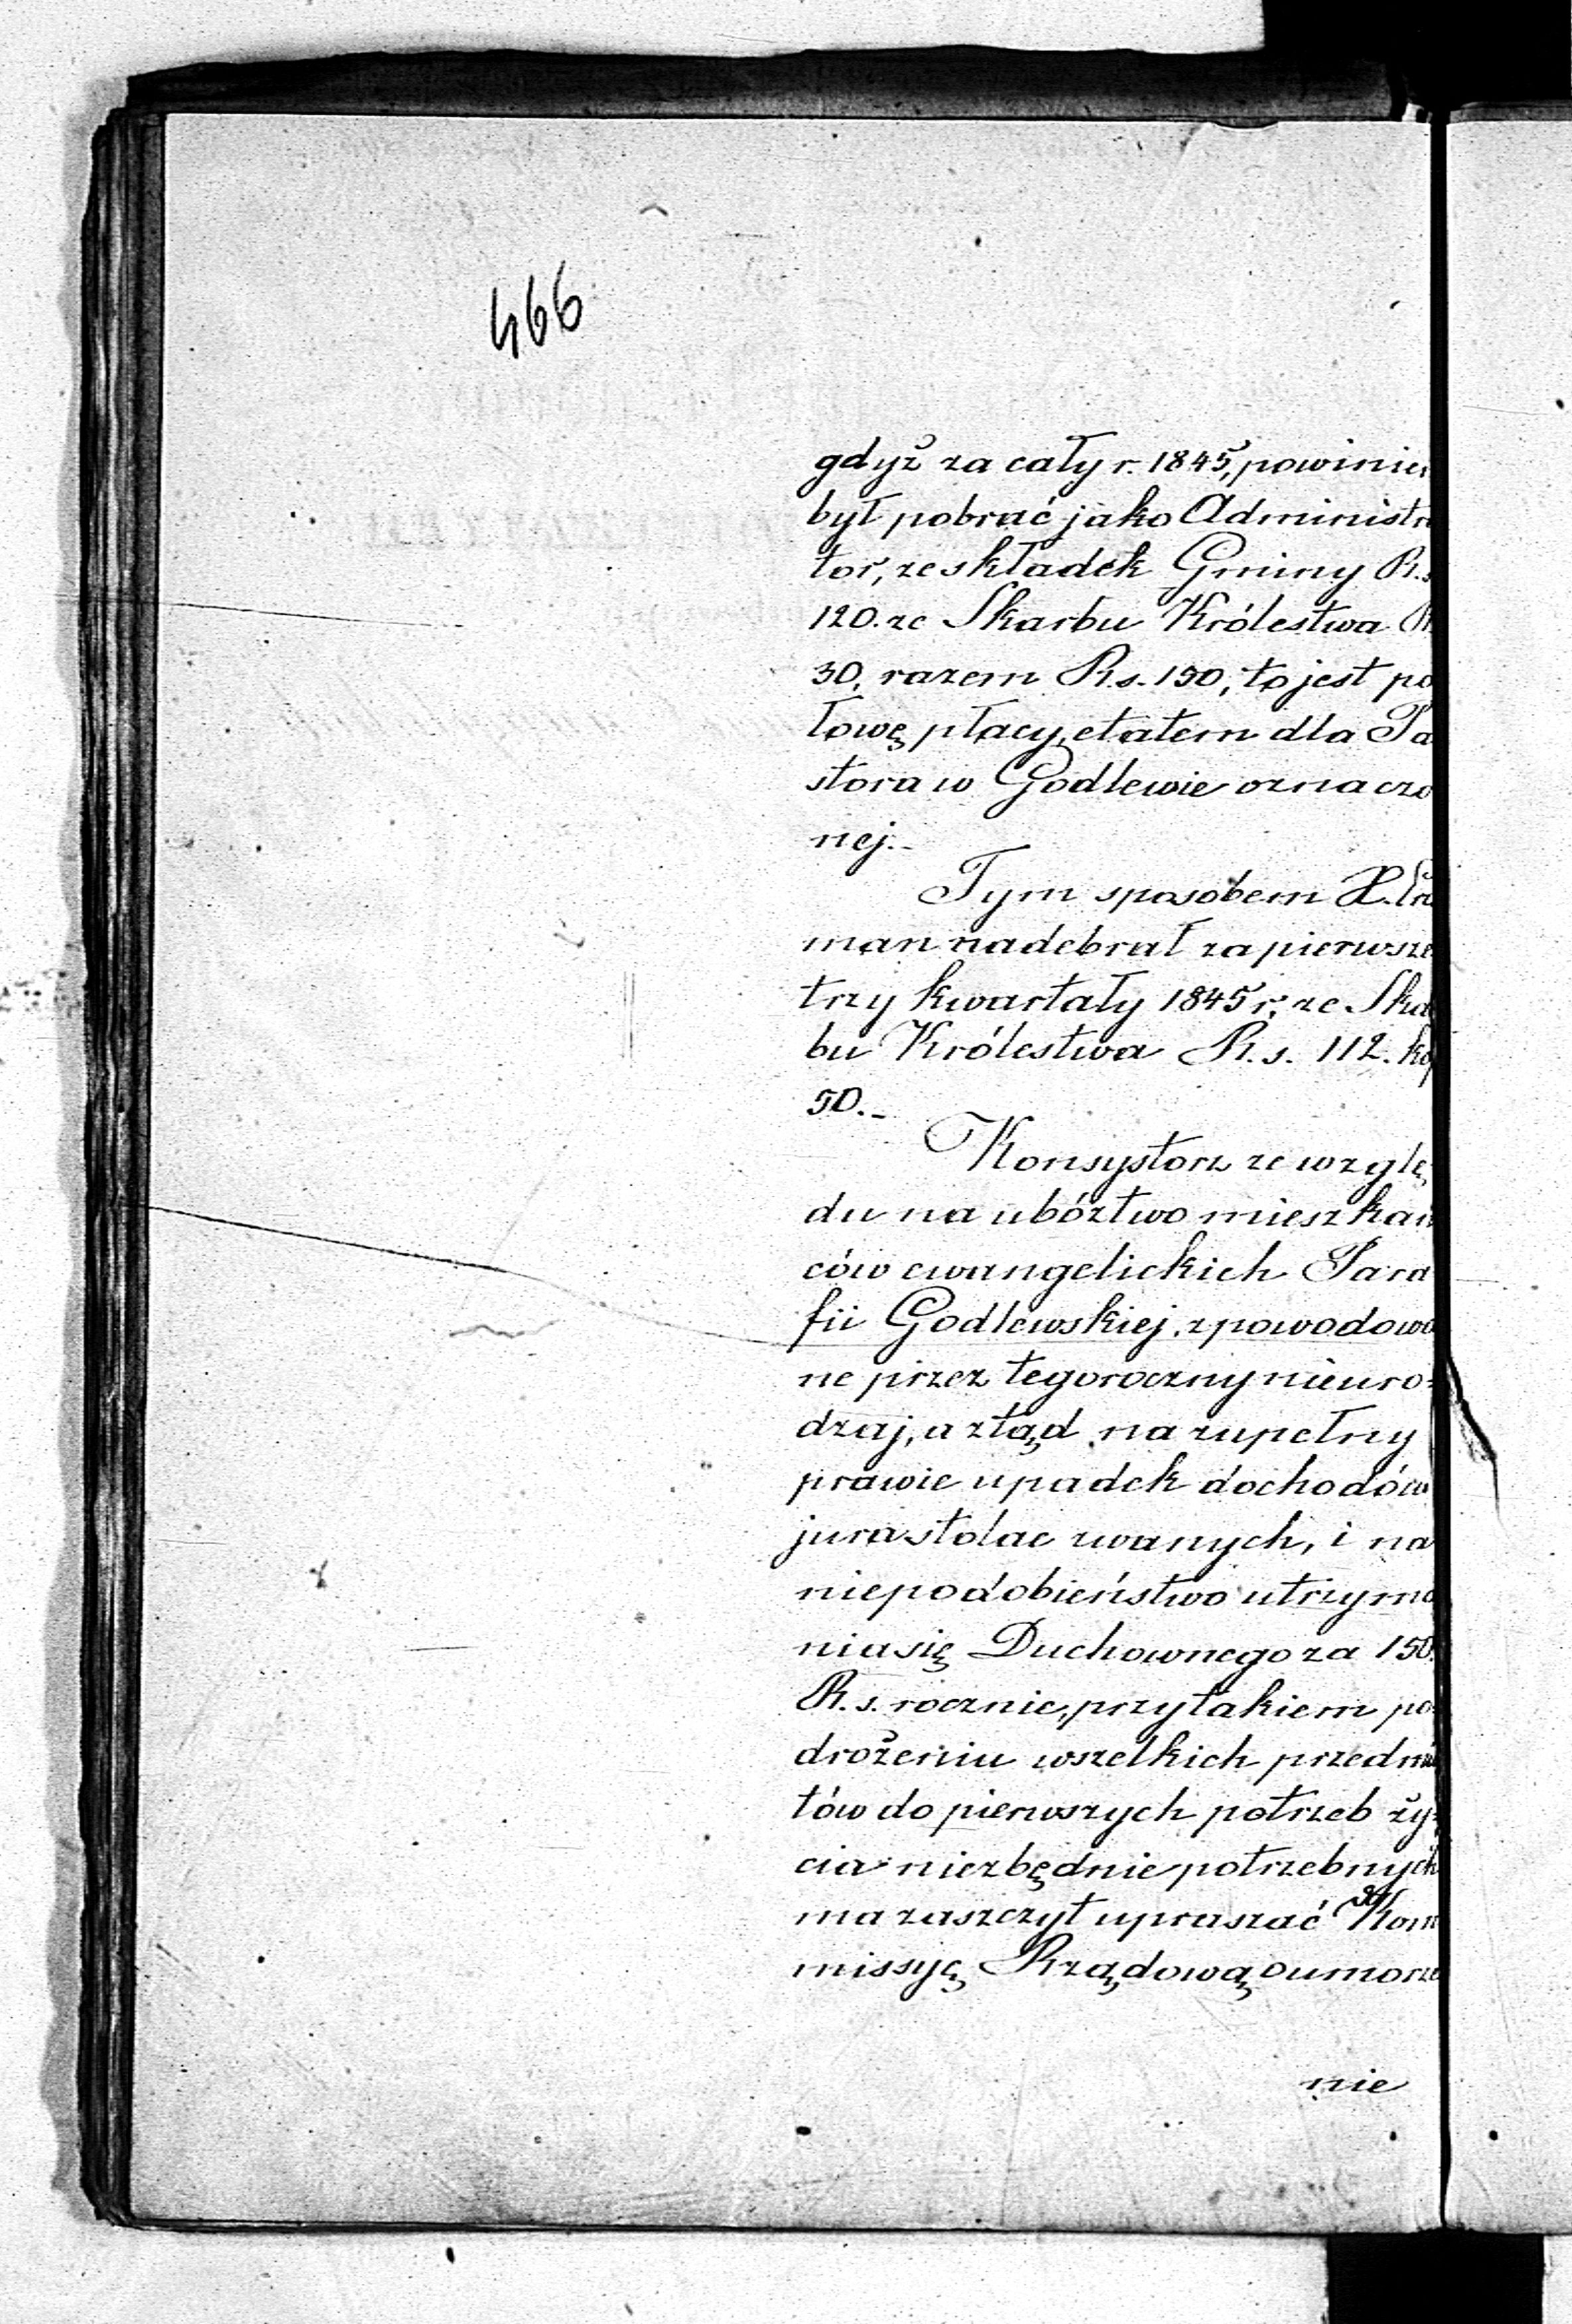 466
gdyż za cały r. 1845, powinien
był pobrać jako Administra
tor, ze składek Gminy R.s
120. ze Skarbu Królestwa R.
30, razem R.s. 150, to jest po
łowę płacy, etatem dla Pa
stora w Godlewie oznaczo
nej.-
Tym sposobem X.
man nadebrał za pierwsze
trzy kwartały 1845 r, ze Ska
bu Królestwa R.s. 112. kop
50.-
Konsystorz ze wzglę
du na ubóztwo mieszkań
ców ewangelickich Para
fii Godlewskiej, zpowodowa
ne przez tegoroczny nieuro=
dzaj, a ztąd na zupełny
prawie upadek dochodów
jura stolae zwanych, i na
niepodobieństwo utrzyma
nia się Duchownego za 150.
R.s. rocznie, przy takiem po=
drożeniu wszelkich przedmio
tów do pierwszych potrzeb ży=
cia niezbędnie potrzebnych
ma zaszczyt upraszać Kom
missyę Rządową o umorze
nie